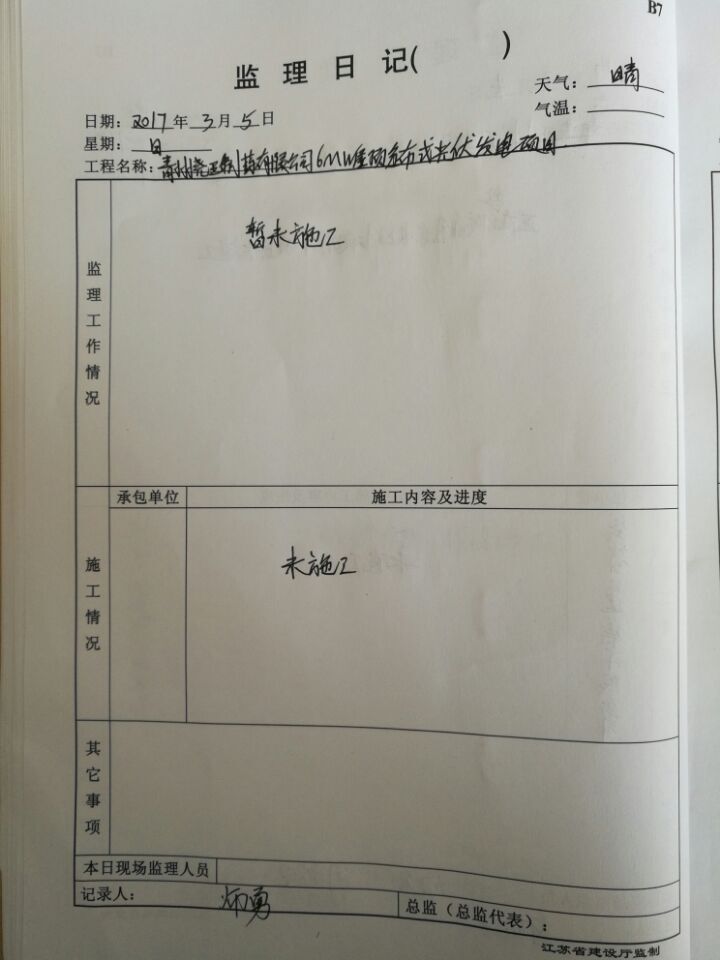 B7
监理日记( )
天气: 晴
日期: 2017年3月5日
气温:
星期: 日
工程名称: 青州尧王制药有限公司6MW屋顶分布式光伏发电项目
监理工作情况
暂未施工
承包单位 施工内容及进度
施工情况
未施工
其它事项
本日现场监理人员
记录人: 勇
总监(总监代表):
江苏省建设厅监制